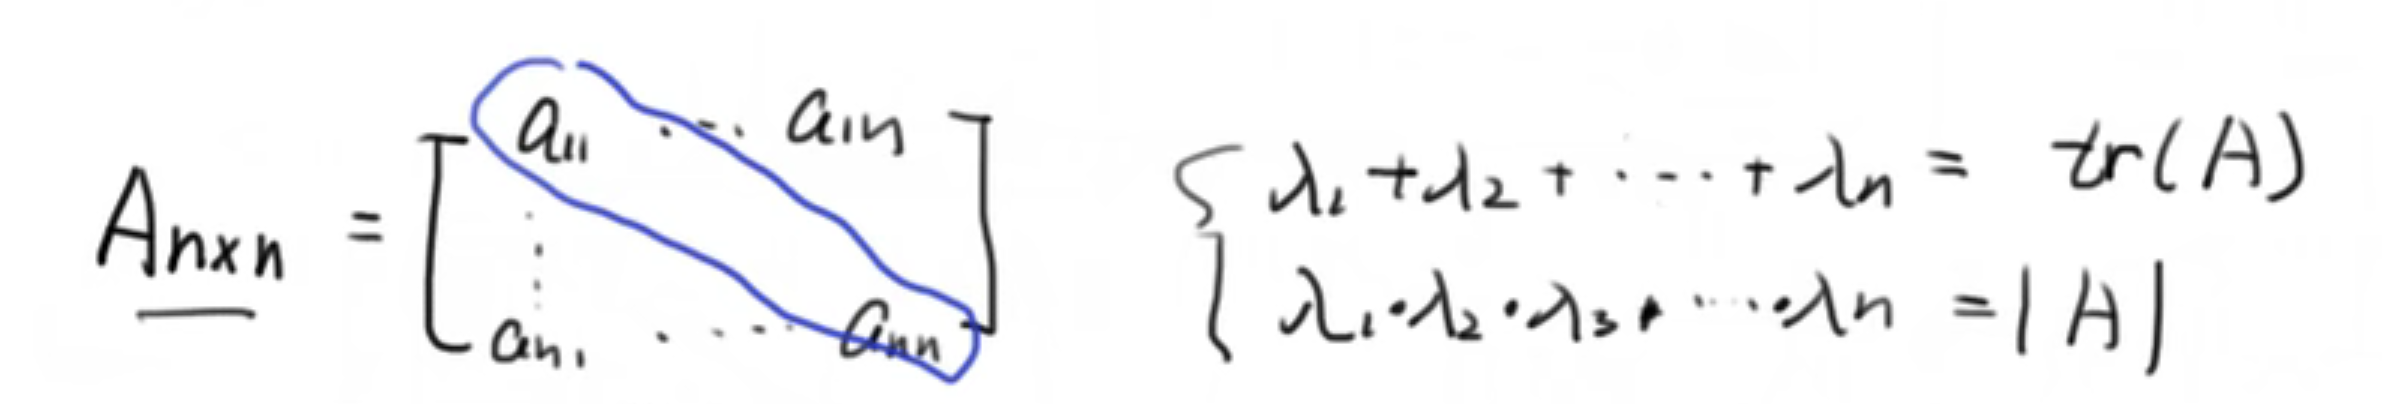 Anxn = [ a11 ... a1n
⋮
an1 .... ann ]
{ λ1 + λ2 + ... + λn = tr(A)
λ1 · λ2 · λ3 · ... · λn = |A|